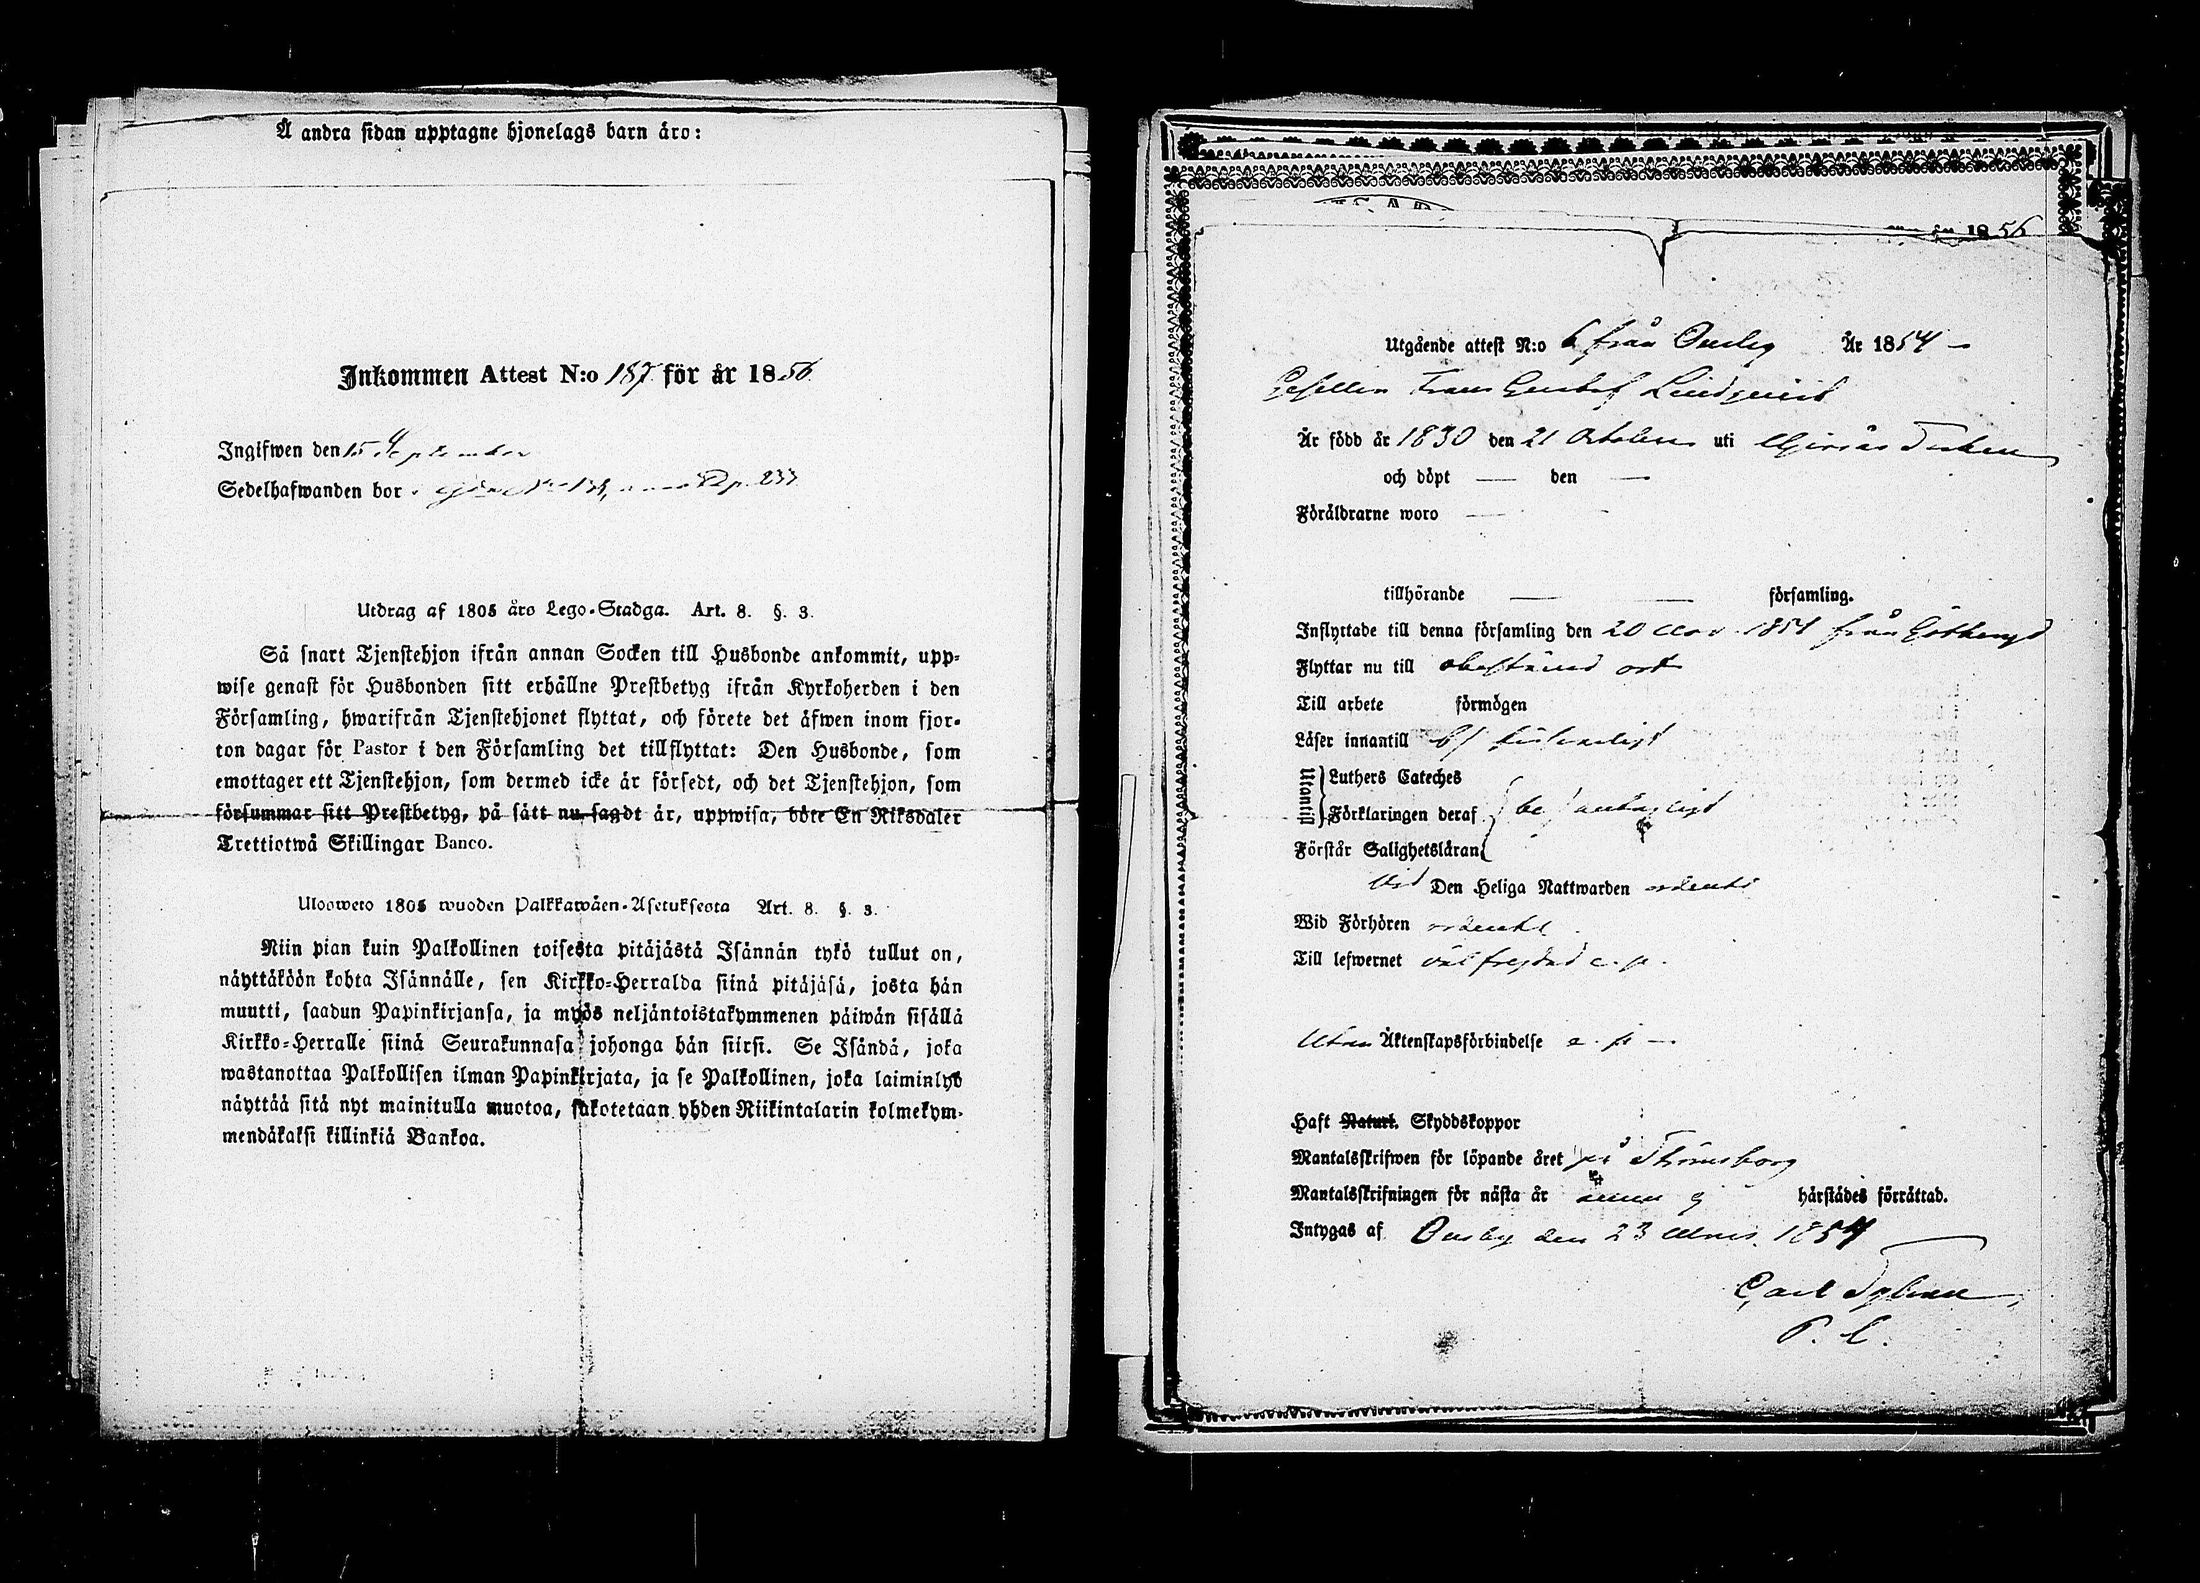 Å andra sidan upptagne hjonelags barn äro:
Inkommen Attest N:o 187 för år 1856
Ingifwen den 15 September
Sedelhafwanden bor p. 233
Utdrag af 1805 års Lego-Stadga. Art. 8. §. 3.
Så snart Tjenstehjon ifrån annan Socken till Husbonde ankommit, upp-
wise genast för Husbonden sitt erhållne Prestbetyg ifrån Kyrkoherden i den
Församling, hwarifrån Tjenstehjonet flyttat, och förete det äfwen inom fjor-
ton dagar för Pastor i den Församling det tillflyttat: Den Husbonde, som
emottager ett Tjenstehjon, som dermed icke är försedt, och det Tjenstehjon, som
försummar sitt Prestbetyg, på sätt nu sagdt är, uppwisa, böte En Riksdaler
Trettiotwå Skillingar Banco.
Ulosweto 1805 wuoden Palkkawäen-Asetuksesta Art. 8. §. 3.
Niin pian kuin Palkollinen toisesta pitäjästä Isännän tykö tullut on,
näyttäköön kohta Isännälle, sen Kirkko-Herralda siinä pitäjäsä, josta hän
muutti, saadun Papinkirjansa, ja myös neljäntoistakymmenen päiwän sisällä
Kirkko-Herralle siinä Seurakunnasa johonga hän siirsi. Se Isändä, joka
wastanottaa Palkollisen ilman Papinkirjata, ja se Palkollinen, joka laiminlyö
näyttää sitä nyt mainitulla muotoa, sakotetaan yhden Riikintalarin kolmekym-
mendäkaksi killinkiä Bankoa.
för år 1856
Utgående attest N:o 6 från Ousby År 1854
Gesellen Frans Gustaf Lindqvist
Är född år 1830 den 21 October uti
och döpt — den —
Föräldrarne woro —
tillhörande — — församling.
Inflyttade till denna församling den 20 Nov. 1851 från Götheryd
Flyttar nu till obestämd ort
Till arbete förmögen
Läser innantill
Utantill
Luthers Cateches
Förklaringen deraf
Förstår Salighetsläran
Vid Den Heliga Nattwarden ordentl
Wid Förhören ordentl.
Till lefwernet välfrejdad c. p.
Utan Äktenskapsförbindelse c. p. —
Haft Naturl. Skyddskoppor
Mantalsskrifwen för löpande året på
Mantalsskrifningen för nästa år ännu ej härstädes förrättad.
Intygas af Ousby den 23 1854
Carl
P. L.